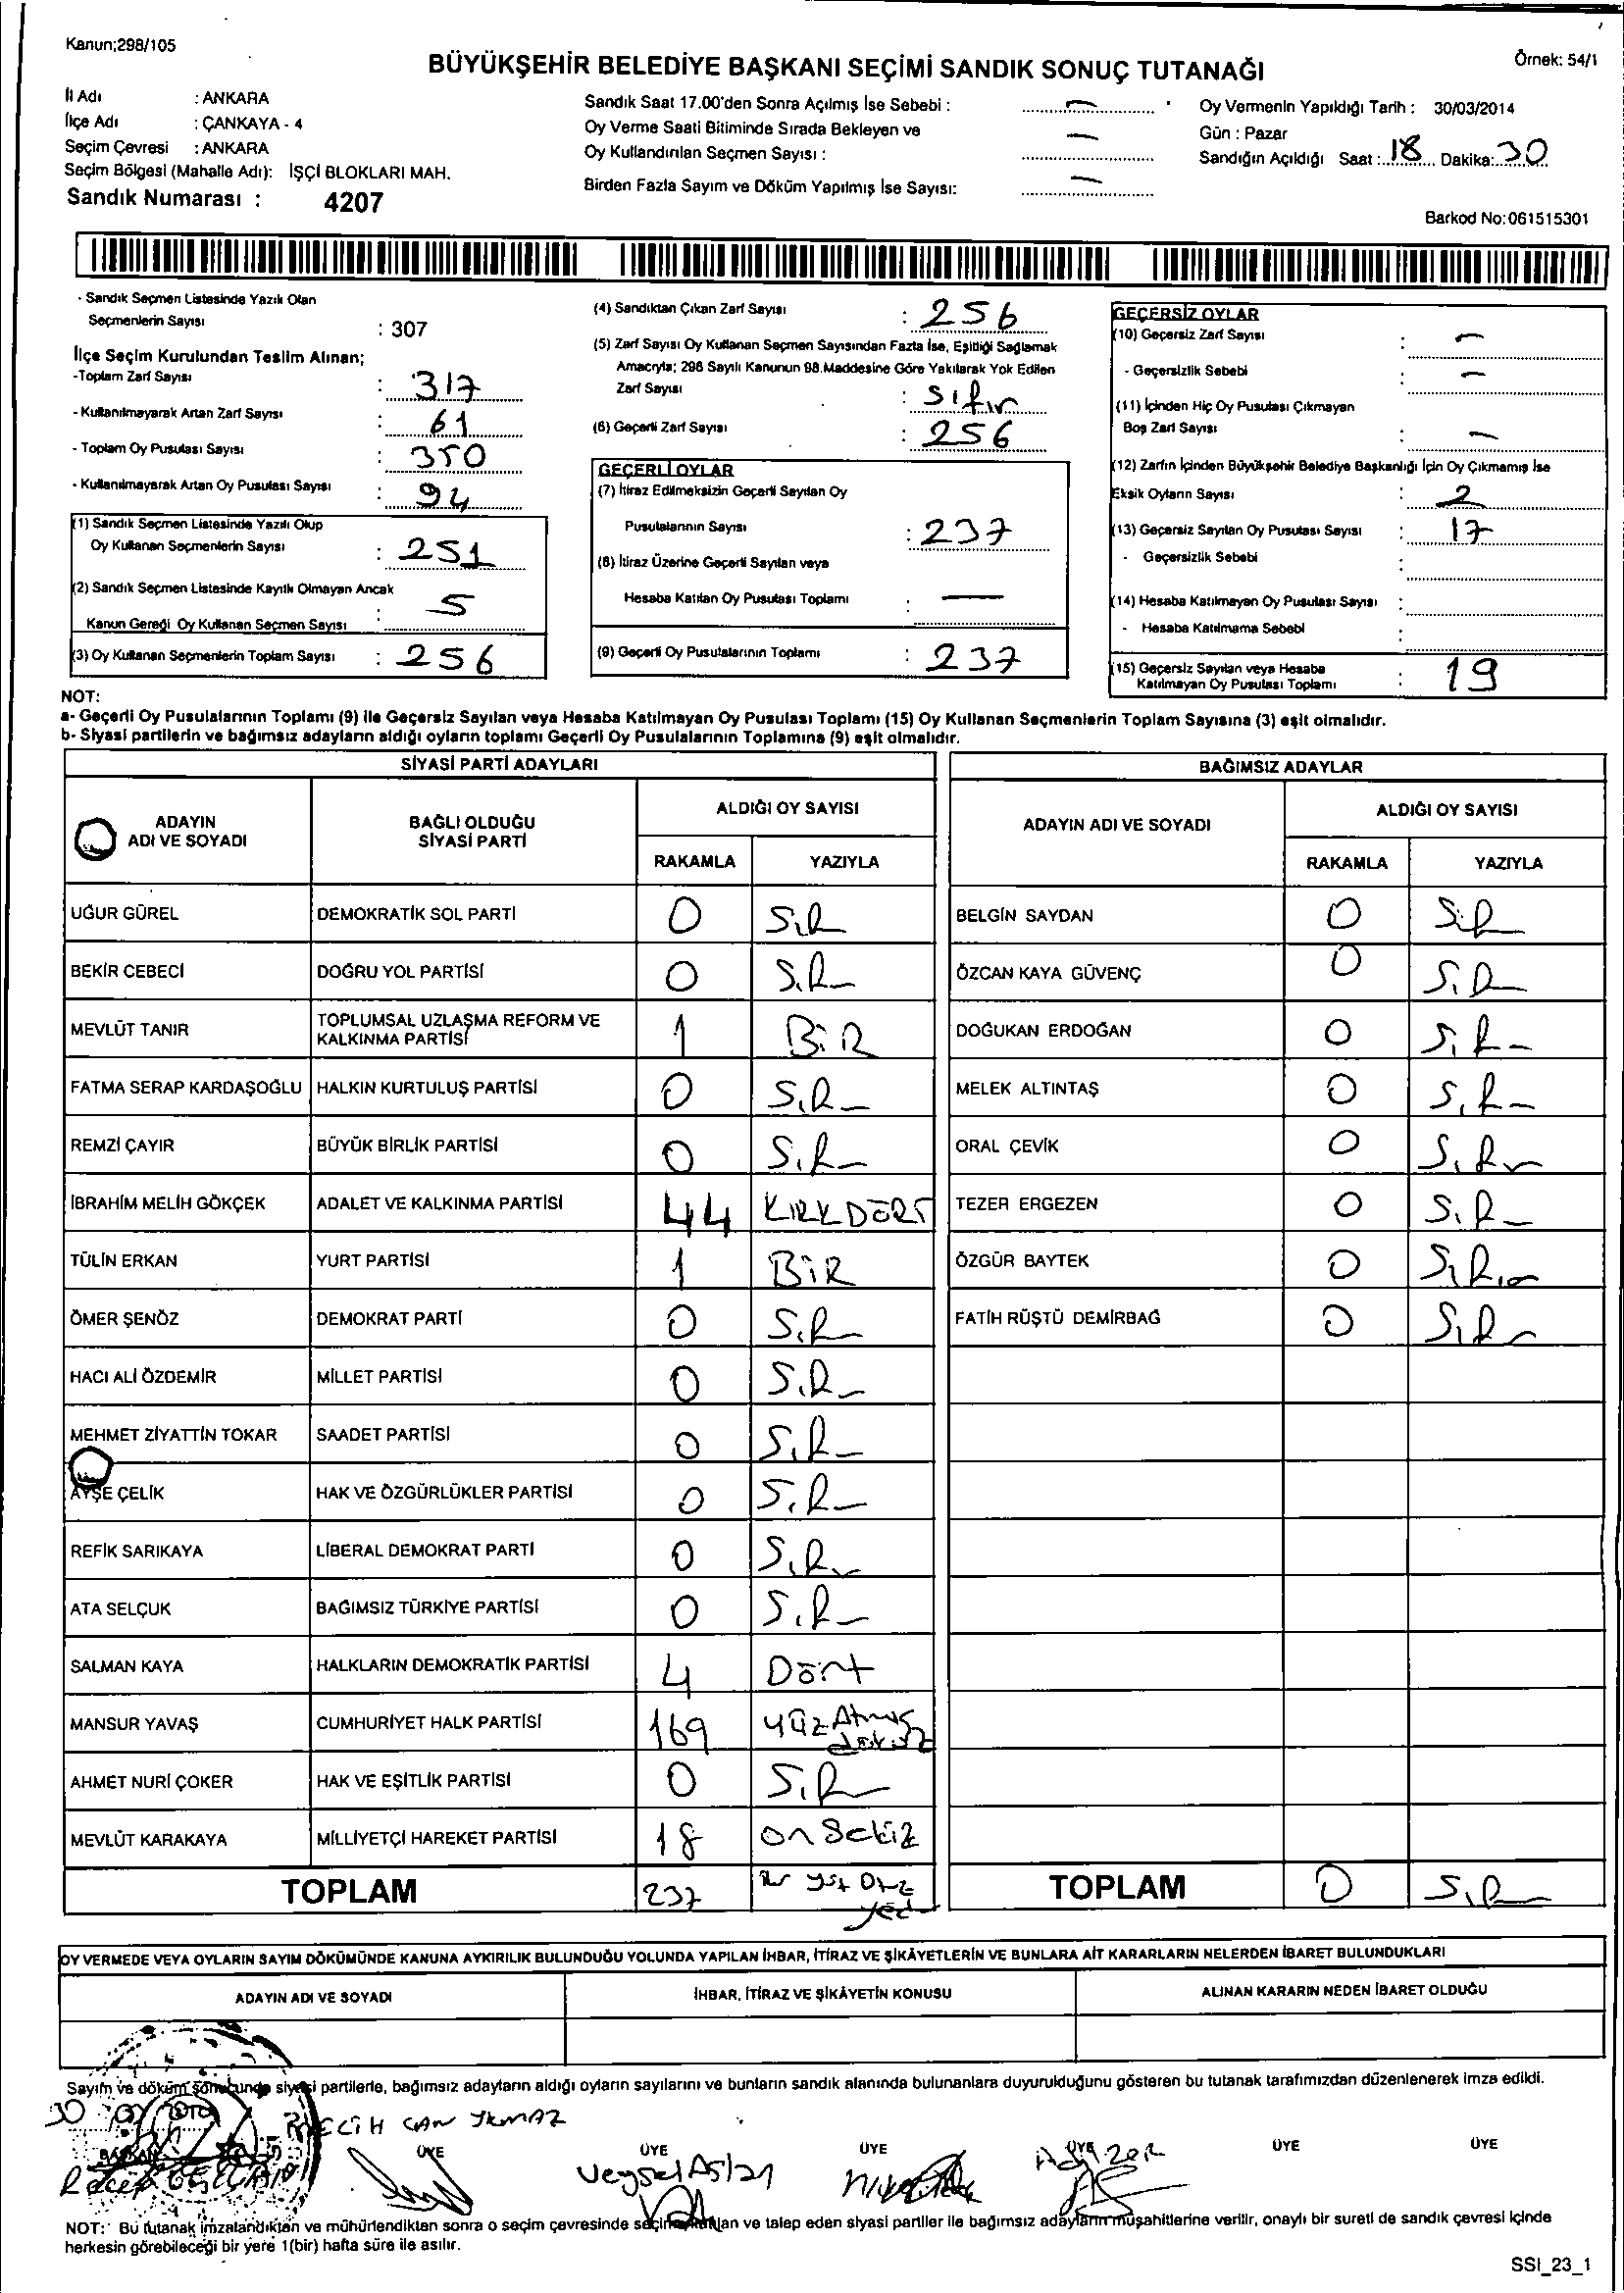 Kanun;298/105
BÜYÜKŞEHİR BELEDİYE BAŞKANI SEÇİMİ SANDIK SONUÇ TUTANAĞI
Örnek: 54/1
İl Adı : ANKARA
İlçe Adı : ÇANKAYA - 4
Seçim Çevresi : ANKARA
Seçim Bölgesi (Mahalle Adı): İŞÇİ BLOKLARI MAH.
Sandık Numarası : 4207
Sandık Saat 17.00'den Sonra Açılmış İse Sebebi : —
Oy Verme Saati Bitiminde Sırada Bekleyen ve
Oy Kullandırılan Seçmen Sayısı : —
Birden Fazla Sayım ve Döküm Yapılmış İse Sayısı: —
Oy Vermenin Yapıldığı Tarih : 30/03/2014
Gün : Pazar
Sandığın Açıldığı Saat : 18 Dakika: 30
Barkod No:061515301
- Sandık Seçmen Listesinde Yazılı Olan
Seçmenlerin Sayısı : 307
İlçe Seçim Kurulundan Teslim Alınan;
-Toplam Zarf Sayısı : 317
- Kullanılmayarak Artan Zarf Sayısı : 61
- Toplam Oy Pusulası Sayısı : 350
- Kullanılmayarak Artan Oy Pusulası Sayısı : 94
(1) Sandık Seçmen Listesinde Yazılı Olup
Oy Kullanan Seçmenlerin Sayısı : 251
(2) Sandık Seçmen Listesinde Kayıtlı Olmayan Ancak
Kanun Gereği Oy Kullanan Seçmen Sayısı : 5
(3) Oy Kullanan Seçmenlerin Toplam Sayısı : 256
(4) Sandıktan Çıkan Zarf Sayısı : 256
(5) Zarf Sayısı Oy Kullanan Seçmen Sayısından Fazla İse, Eşitliği Sağlamak
Amacıyla; 298 Sayılı Kanunun 98.Maddesine Göre Yakılarak Yok Edilen
Zarf Sayısı : Sıfır
(6) Geçerli Zarf Sayısı : 256
GEÇERLİ OYLAR
(7) İtiraz Edilmeksizin Geçerli Sayılan Oy
Pusulalarının Sayısı : 237
(8) İtiraz Üzerine Geçerli Sayılan veya
Hesaba Katılan Oy Pusulası Toplamı : —
(9) Geçerli Oy Pusulalarının Toplamı : 237
GEÇERSİZ OYLAR
(10) Geçersiz Zarf Sayısı : —
- Geçersizlik Sebebi : —
(11) İçinden Hiç Oy Pusulası Çıkmayan
Boş Zarf Sayısı : —
(12) Zarfın İçinden Büyükşehir Belediye Başkanlığı İçin Oy Çıkmamış İse
Eksik Oyların Sayısı : 2
(13) Geçersiz Sayılan Oy Pusulası Sayısı : 17
- Geçersizlik Sebebi :
(14) Hesaba Katılmayan Oy Pusulası Sayısı :
- Hesaba Katılmama Sebebi :
(15) Geçersiz Sayılan veya Hesaba
Katılmayan Oy Pusulası Toplamı : 19
NOT:
a- Geçerli Oy Pusulalarının Toplamı (9) ile Geçersiz Sayılan veya Hesaba Katılmayan Oy Pusulası Toplamı (15) Oy Kullanan Seçmenlerin Toplam Sayısına (3) eşit olmalıdır.
b- Siyasi partilerin ve bağımsız adayların aldığı oyların toplamı Geçerli Oy Pusulalarının Toplamına (9) eşit olmalıdır.
SİYASİ PARTİ ADAYLARI
ADAYIN ADI VE SOYADI BAĞLI OLDUĞU SİYASİ PARTİ ALDIĞI OY SAYISI
RAKAMLA YAZIYLA
UĞUR GÜREL DEMOKRATİK SOL PARTİ 0
BEKİR CEBECİ DOĞRU YOL PARTİSİ 0
MEVLÜT TANIR TOPLUMSAL UZLAŞMA REFORM VE KALKINMA PARTİSİ 1 BİR
FATMA SERAP KARDAŞOĞLU HALKIN KURTULUŞ PARTİSİ 0
REMZİ ÇAYIR BÜYÜK BİRLİK PARTİSİ 0
İBRAHİM MELİH GÖKÇEK ADALET VE KALKINMA PARTİSİ 44 KIRKDÖRT
TÜLİN ERKAN YURT PARTİSİ 1 BİR
ÖMER ŞENÖZ DEMOKRAT PARTİ 0
HACI ALİ ÖZDEMİR MİLLET PARTİSİ 0
MEHMET ZİYATTİN TOKAR SAADET PARTİSİ 0
AYŞE ÇELİK HAK VE ÖZGÜRLÜKLER PARTİSİ 0
REFİK SARIKAYA LİBERAL DEMOKRAT PARTİ 0
ATA SELÇUK BAĞIMSIZ TÜRKİYE PARTİSİ 0
SALMAN KAYA HALKLARIN DEMOKRATİK PARTİSİ 4 Dört
MANSUR YAVAŞ CUMHURİYET HALK PARTİSİ 169 yüz Atmış dokuz
AHMET NURİ ÇOKER HAK VE EŞİTLİK PARTİSİ 0
MEVLÜT KARAKAYA MİLLİYETÇİ HAREKET PARTİSİ 18 on Sekiz
TOPLAM 237
BAĞIMSIZ ADAYLAR
ADAYIN ADI VE SOYADI ALDIĞI OY SAYISI
RAKAMLA YAZIYLA
BELGİN SAYDAN 0
ÖZCAN KAYA GÜVENÇ 0
DOĞUKAN ERDOĞAN 0
MELEK ALTINTAŞ 0
ORAL ÇEVİK 0
TEZER ERGEZEN 0
ÖZGÜR BAYTEK 0
FATİH RÜŞTÜ DEMİRBAĞ 0
TOPLAM 0
OY VERMEDE VEYA OYLARIN SAYIM DÖKÜMÜNDE KANUNA AYKIRILIK BULUNDUĞU YOLUNDA YAPILAN İHBAR, İTİRAZ VE ŞİKÂYETLERİN VE BUNLARA AİT KARARLARIN NELERDEN İBARET BULUNDUKLARI
ADAYIN ADI VE SOYADI İHBAR, İTİRAZ VE ŞİKÂYETİN KONUSU ALINAN KARARIN NEDEN İBARET OLDUĞU
Sayım ve döküm sonucunda siyasi partilerle, bağımsız adayların aldığı oyların sayılarını ve bunların sandık alanında bulunanlara duyurulduğunu gösteren bu tutanak tarafımızdan düzenlenerek imza edildi.
BAŞKAN ÜYE ÜYE ÜYE ÜYE ÜYE ÜYE
Recep Veysel Aslan
NOT: Bu tutanak imzalandıktan ve mühürlendikten sonra o seçim çevresinde seçime katılan ve talep eden siyasi partiler ile bağımsız adayların müşahitlerine verilir, onaylı bir sureti de sandık çevresi içinde
herkesin görebileceği bir yere 1(bir) hafta süre ile asılır.
SSI_23_1